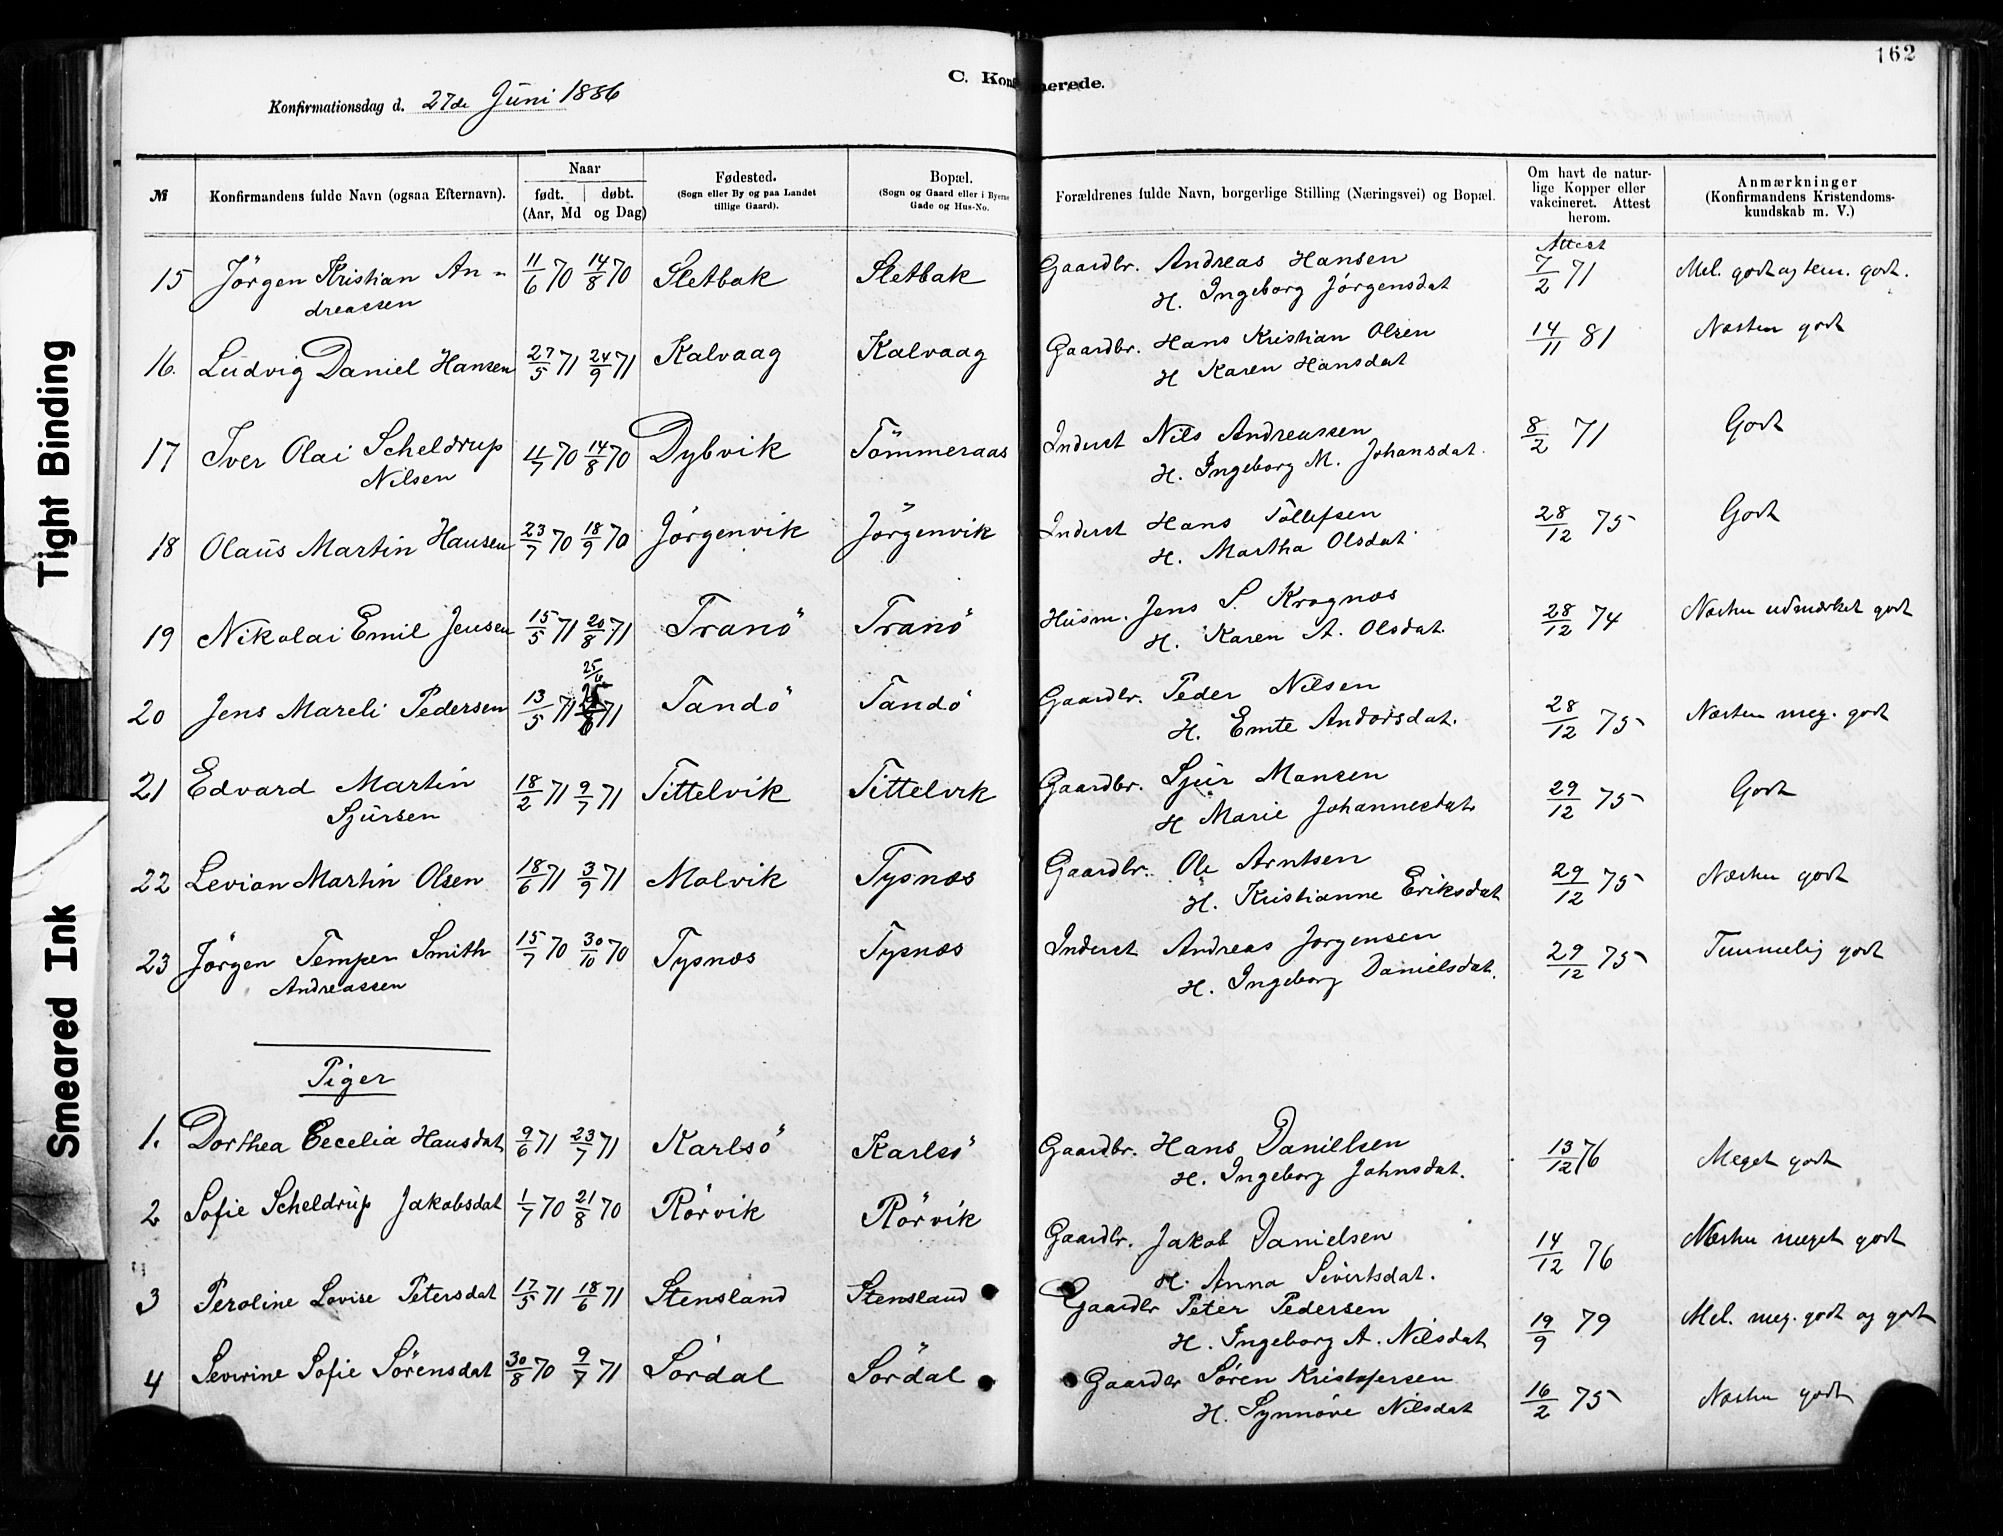 162
C. Konfirmerede.
Konfirmationsdag d. 27de Juni 1886
№
Konfirmandens fulde Navn (ogsaa Efternavn).
Naar
født. | døbt.
(Aar, Md og Dag)
Fødested.
(Sogn eller By og paa Landet tillige Gaard).
Bopæl.
(Sogn og Gaard eller i Byerne Gade og Hus-No.
Forældrenes fulde Navn, borgerlige Stilling (Næringsvei) og Bopæl.
Om havt de naturlige Kopper eller vakcineret. Attest herom.
Anmærkninger
(Konfirmandens Kristendomskundskab m. V.)
15 Jörgen Kristian An- 11/6 70 14/8 70 Sletbak Sletbak Gaardbr. Andreas Hansen Attest 7/2 71 Mel. godt og tem. godt.
dreassen H. Ingeborg Jörgensdat
16. Ludvig Daniel Hansen 27/5 71 24/9 71 Kalvaag Kalvaag Gaardbr. Hans Kristian Olsen 14/11 81 Næsten godt
H Karen Hansdat
17 Iver Olai Scheldrup 11/7 70 14/8 70 Dybvik Tömmeraas Inderst Nils Andreassen 8/2 71 Godt
Nilsen H. Ingeborg M. Johansdat.
18 Olaus Martin Hansen 23/7 70 18/9 70 Jörgenvik Jörgenvik Inderst Hans Tollefsen 28/12 75 Godt
H. Martha Olsdat
19 Nikolai Emil Jensen 15/5 71 20/8 71 Tranö Tranö Husm. Jens S. Kragnæs 28/12 74 Næsten udmærket godt
H. Karen A. Olsdat.
25/6
20 Jens Mareli Pedersen 13/5 71 71 Tandö Tandö Gaardbr. Peder Nilsen 28/12 75 Næsten meg. godt
H. Emte Andorsdat.
21 Edvard Martin 18/2 71 9/7 71 Tittelvik Tittelvik Gaardbr. Sjur Monsen 29/12 75 Godt
Sjursen H Marie Johannesdat.
22 Levian Martin Olsen 18/6 71 3/9 71 Molvik Tysnæs Gaardbr. Ole Arntsen 29/12 75 Næsten godt
H. Kristianne Eriksdat
23 Jörgen Temper Smith 15/7 70 30/10 70 Tysnæs Tysnæs Inderst Andreas Jorgensen 29/12 75 Temmelig godt
Andreassen H. Ingeborg Danielsdat.
Piger
1. Dorthea Cecelia Hansdat 9/6 71 23/7 71 Karlsö Karlsö Gaardbr. Hans Daniellsen 13/12 76 Meget godt
H. Ingeborg Johnsdat.
2 Sofie Scheldrup Jakobsdat 1/7 70 21/8 70 Rörvik Rörvik Gaardbr. Jakob Danielsen 14/12 76 Næsten meget godt
H. Anna Sivertsdat.
3 Peroline Lovise Petersdat 17/5 71 18/6 71 Stensland Stensland Gaardbr Peter Pedersen 19/9 79 Mel. meg. godt og godt
H. Ingeborg A. Nilsdat
4 Sevirine Sofie Sörensdat 30/8 70 9/7 71 Sördal Sördal Gaardbr Sören Kristofersen 16/2 75 Næsten godt
H. Synnöve Nilsdat
Tight Binding
Smeared Ink